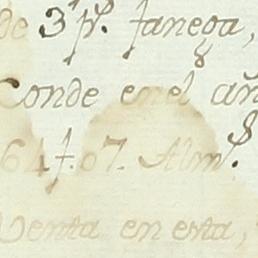 de 3 p.r Fanega,
Conde en el añ
64 f. 07. Alm.s
Venta en esta,